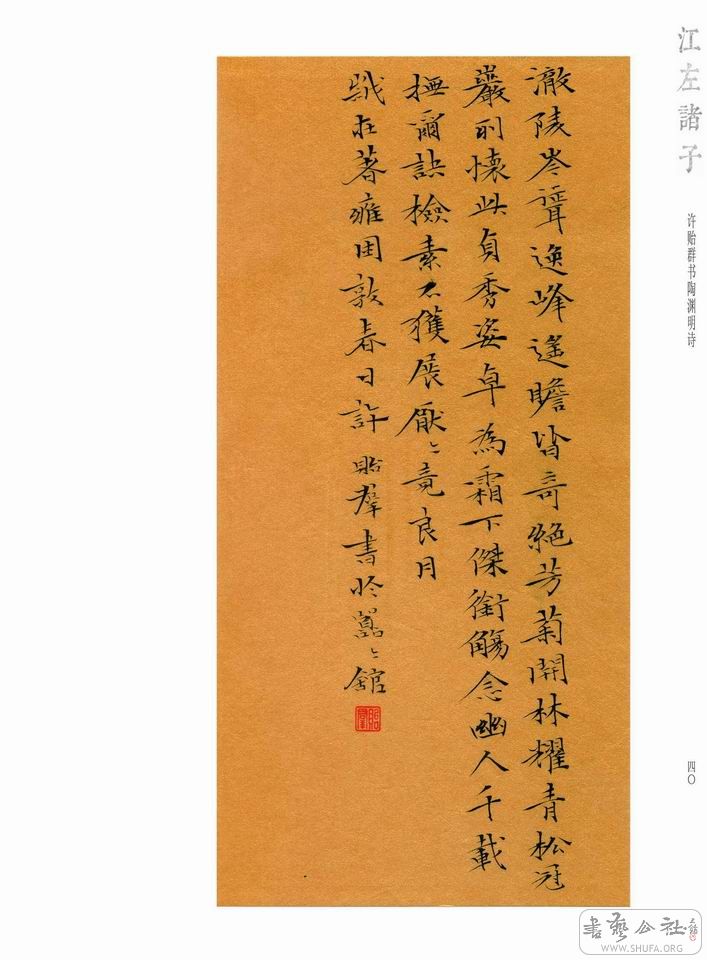 江左諸子
许贻群书陶渊明诗
四〇
澈陵岑聳逸峰遙瞻皆奇絕芳菊開林耀青松冠
巖列懷此貞秀姿卓為霜下傑銜觴念幽人千載
撫爾訣檢素不獲展厭〻竟良月
歲在著雍困敦春日許貽羣書於囂〻館
書藝公社
WWW.SHUFA.ORG